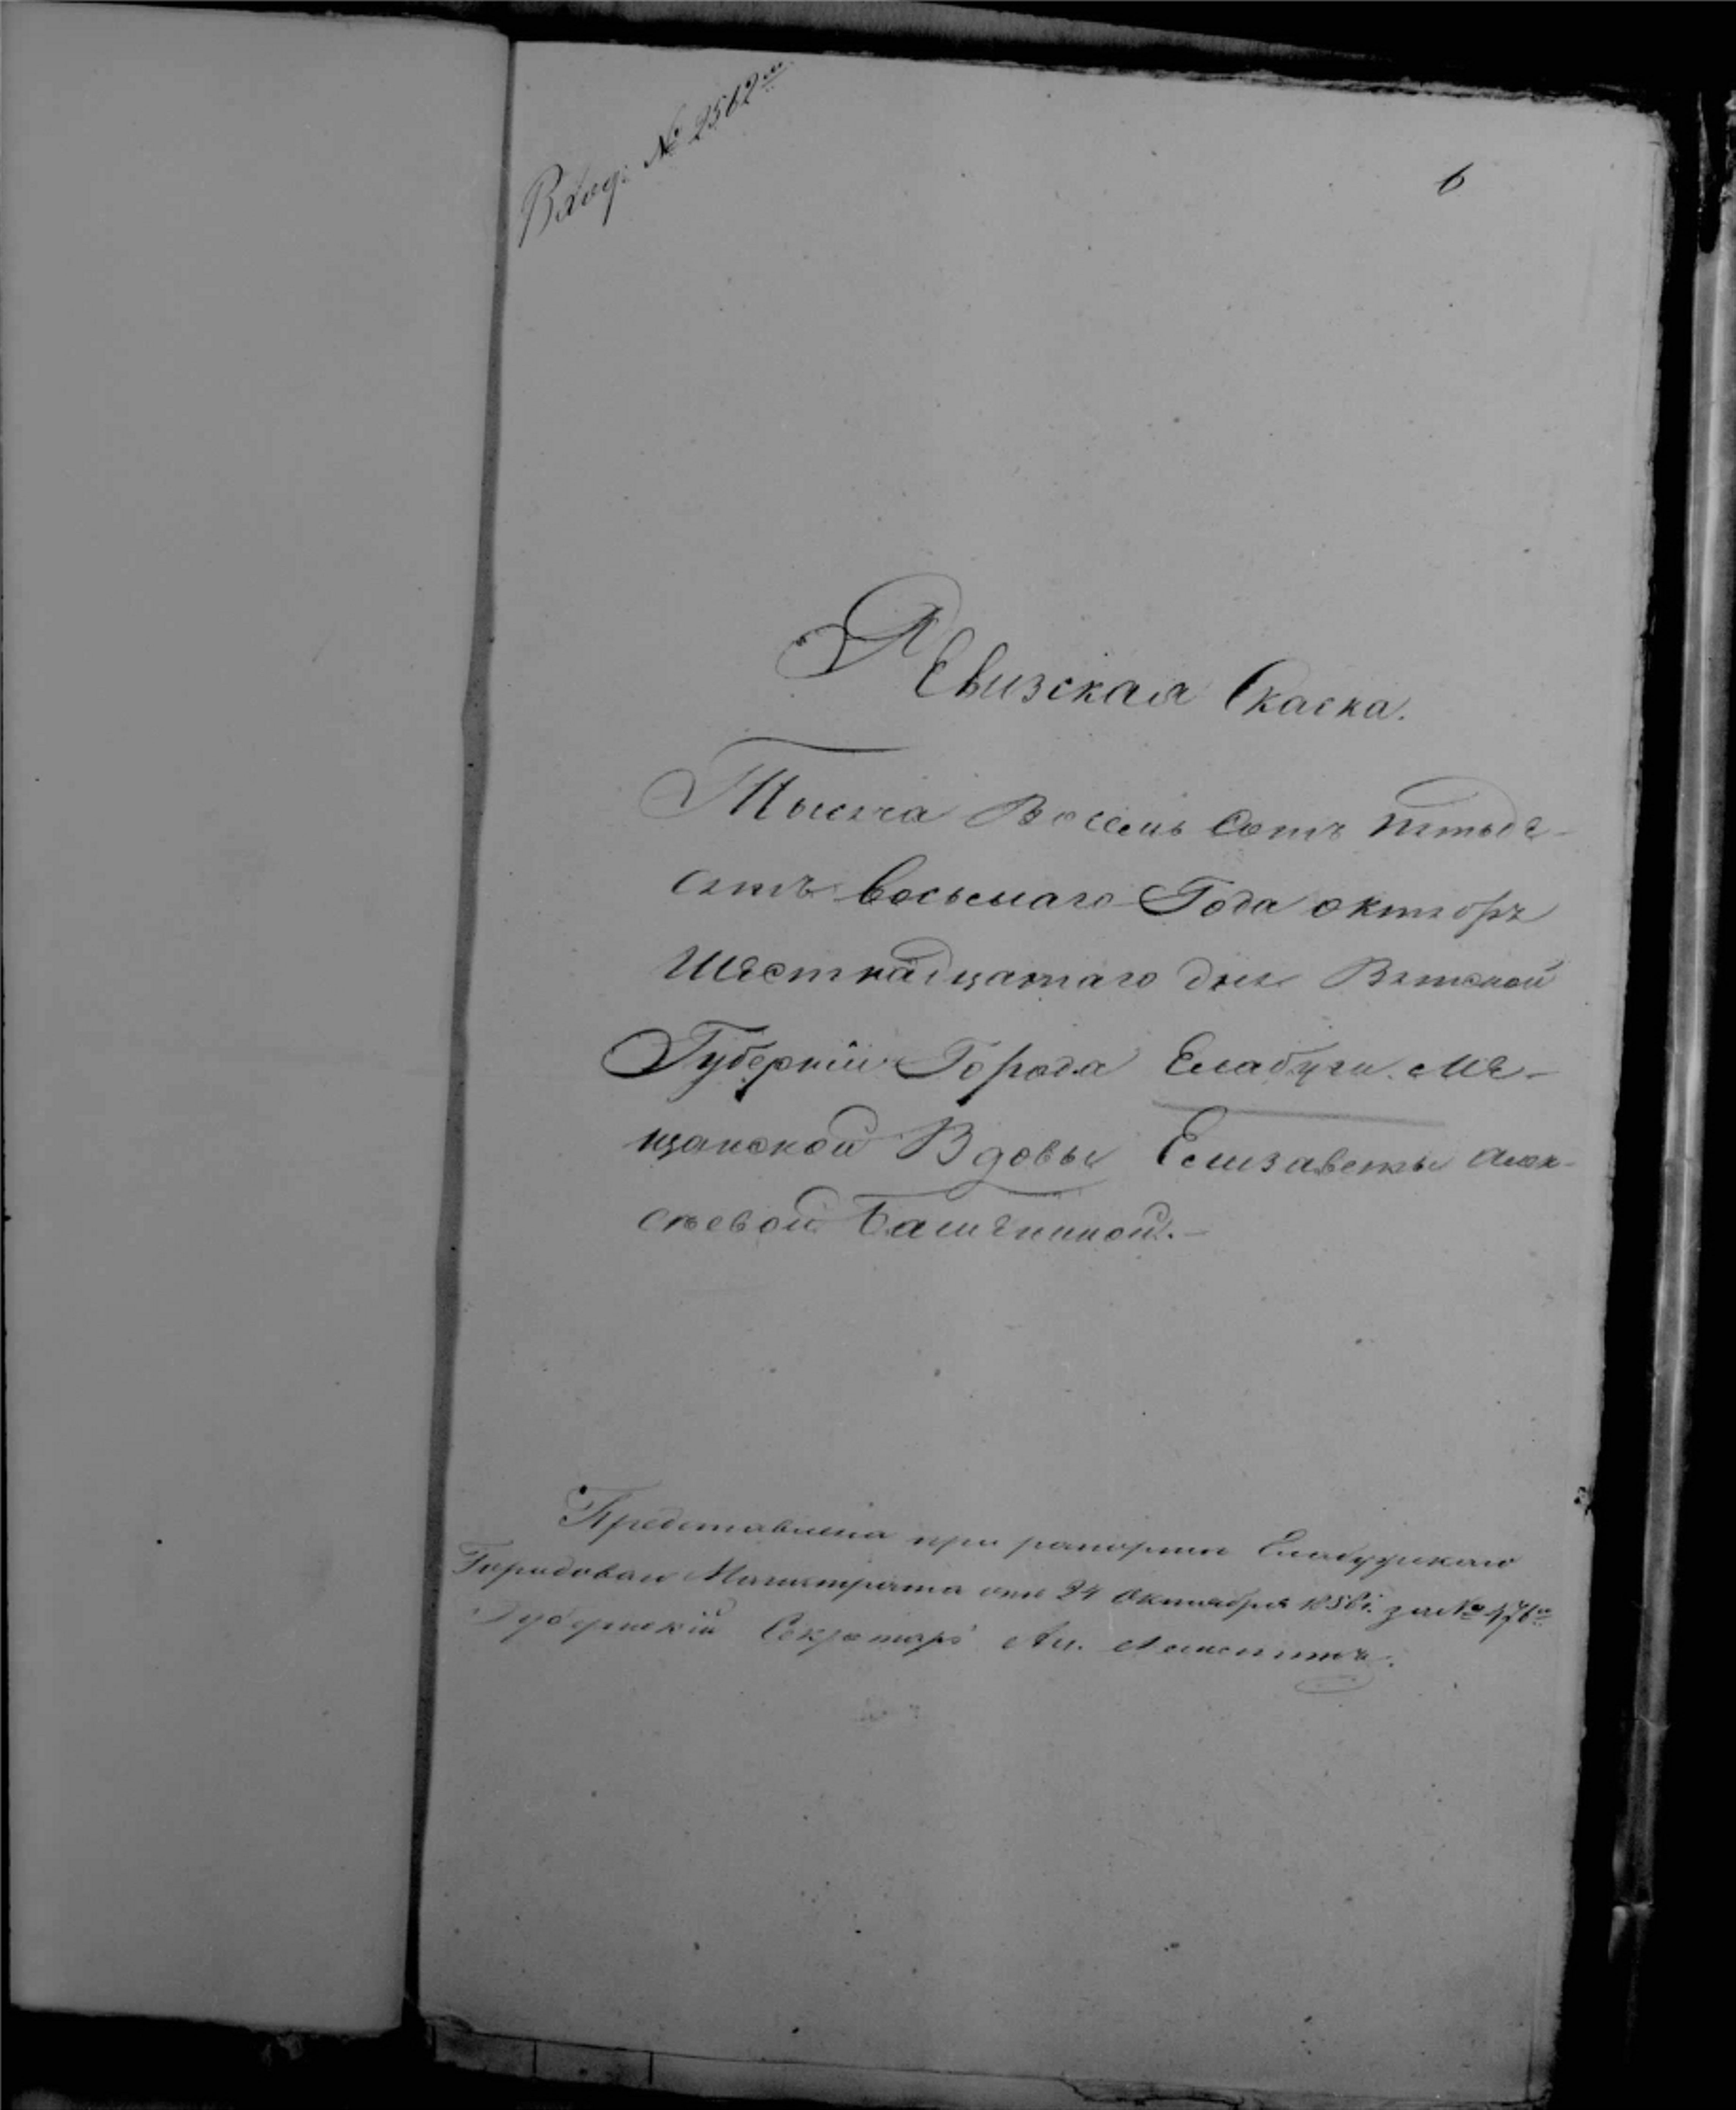 Вход: № 2562й
6
Ревизская Скаска.
Тысяча Восемь Сотъ пятьде-
сятъ восьмаго Года октября
Шестнадцатаго дня Вятской
Губернии Города Елабуги Ме-
щанской Вдовы Елизаветы Алек-
сѣевой
Представлена при рапорте Елабужскаго
Городоваго Магистрата отъ 24 Октября 1858 г. за №
Губернский Секретарь Ал.